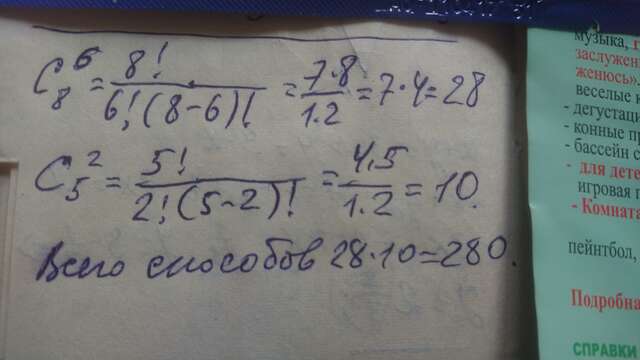 C₈⁶ = 8! / 6!(8-6)! = 7·8 / 1·2 = 7·4 = 28
C₅² = 5! / 2!(5-2)! = 4·5 / 1·2 = 10.
Всего способов 28·10=280.
музыка,
заслужен
женюсь»
веселые
- дегустаци
- конные пр
- бассейн с
- для дете
игровая п
- Комната
пейнтбол,
Подробна
СПРАВКИ